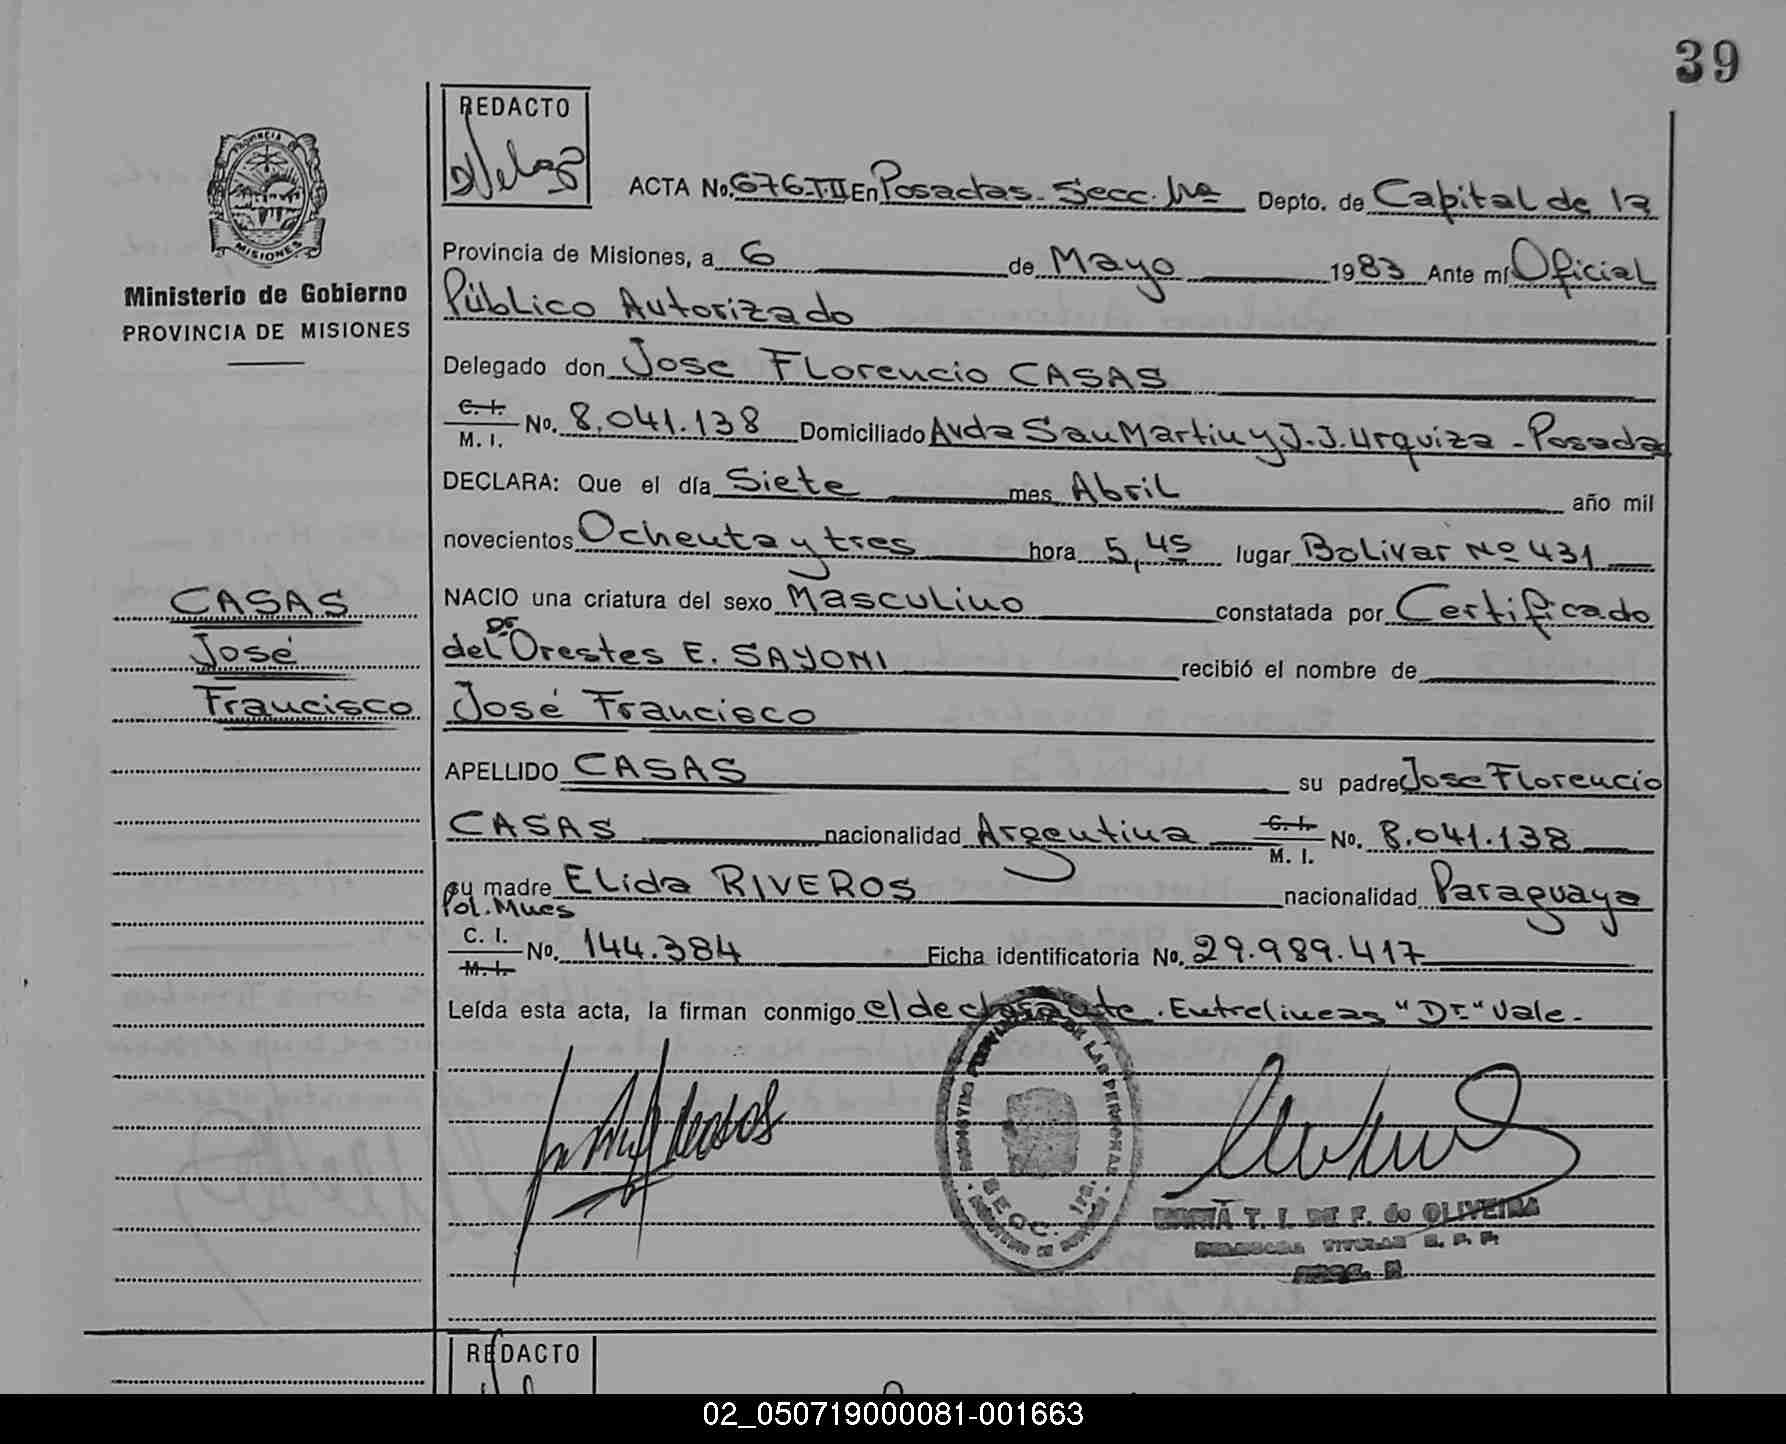 39
REDACTO
ACTA No. 676-T.II En Posadas. Secc. 1ra Depto. de Capital de la
PROVINCIA
MISIONES
Ministerio de Gobierno
PROVINCIA DE MISIONES
Provincia de Misiones, a 6 de Mayo 1983 Ante mí Oficial
Público Autorizado
Delegado don Jose Florencio CASAS
C. I.
M. I. No. 8.041.138 Domiciliado Avda San Martin y J.J. Urquiza - Posadas
DECLARA: Que el día Siete mes Abril año mil
novecientos Ochenta y tres hora 5,45 lugar Bolivar Nº 431
CASAS
José
Francisco
NACIO una criatura del sexo Masculino constatada por Certificado
del Dr Orestes E. SAYONI recibió el nombre de
José Francisco
APELLIDO CASAS su padre Jose Florencio
CASAS nacionalidad Argentina C. I. M. I. No. 8.041.138
su madre Elida RIVEROS nacionalidad Paraguaya
Pol. Mnes
C. I.
M. I. No. 144.384 Ficha identificatoria No. 29.989.417
Leída esta acta, la firman conmigo el declarante. Entrelineas "Dr" Vale.
DE LAS PERSONAS
MARIA T. I. DE F. de OLIVEIRA
TITULAR
REDACTO
02_050719000081-001663